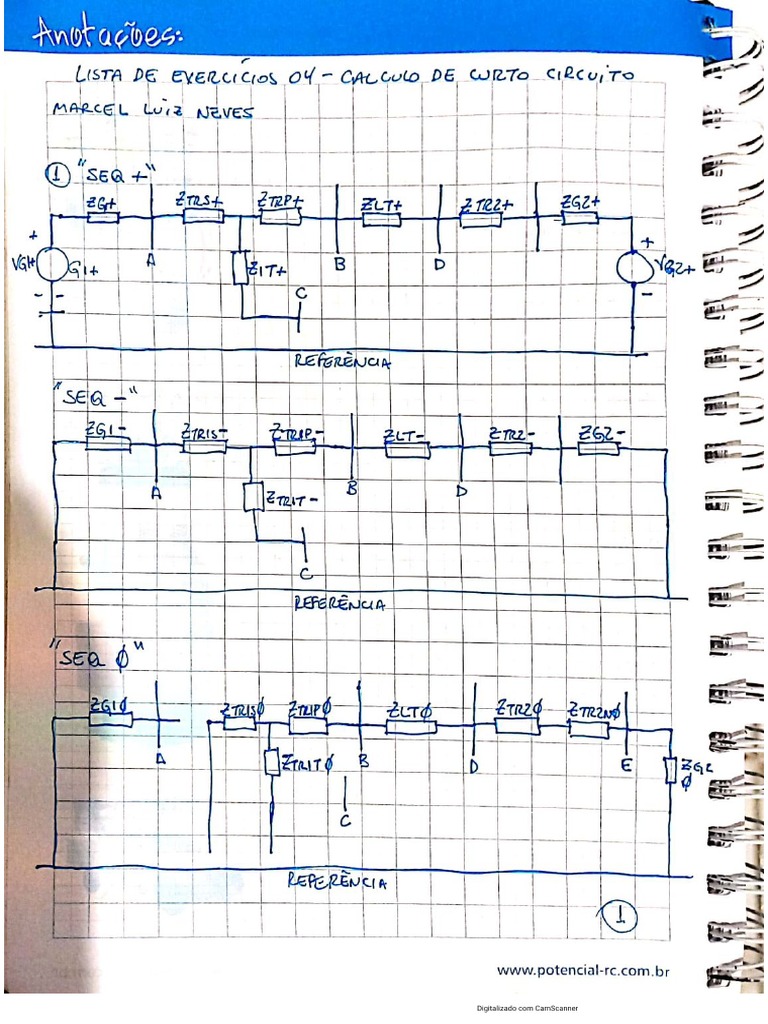 Anotações:
LISTA DE EXERCÍCIOS 04 - CALCULO DE CURTO CIRCUITO
MARCEL LUIZ NEVES
1 "SEQ +"
ZG+ ZTRS+ ZTRP+ ZLT+ ZTR2+ ZG2+
+ +
VG1+ G1+ A Z1T+ B D VG2+
- - C -
REFERÊNCIA
"SEQ -"
ZG1- ZTR1S- ZTR1P- ZLT- ZTR2- ZG2-
A ZTR1T- B D
C
REFERÊNCIA
"SEQ Ø"
ZG1Ø ZTR1SØ ZTR1PØ ZLTØ ZTR2Ø ZTR2NØ
A ZTR1TØ B D E ZG2
Ø
C
REFERÊNCIA
1
www.potencial-rc.com.br
Digitalizado com CamScanner